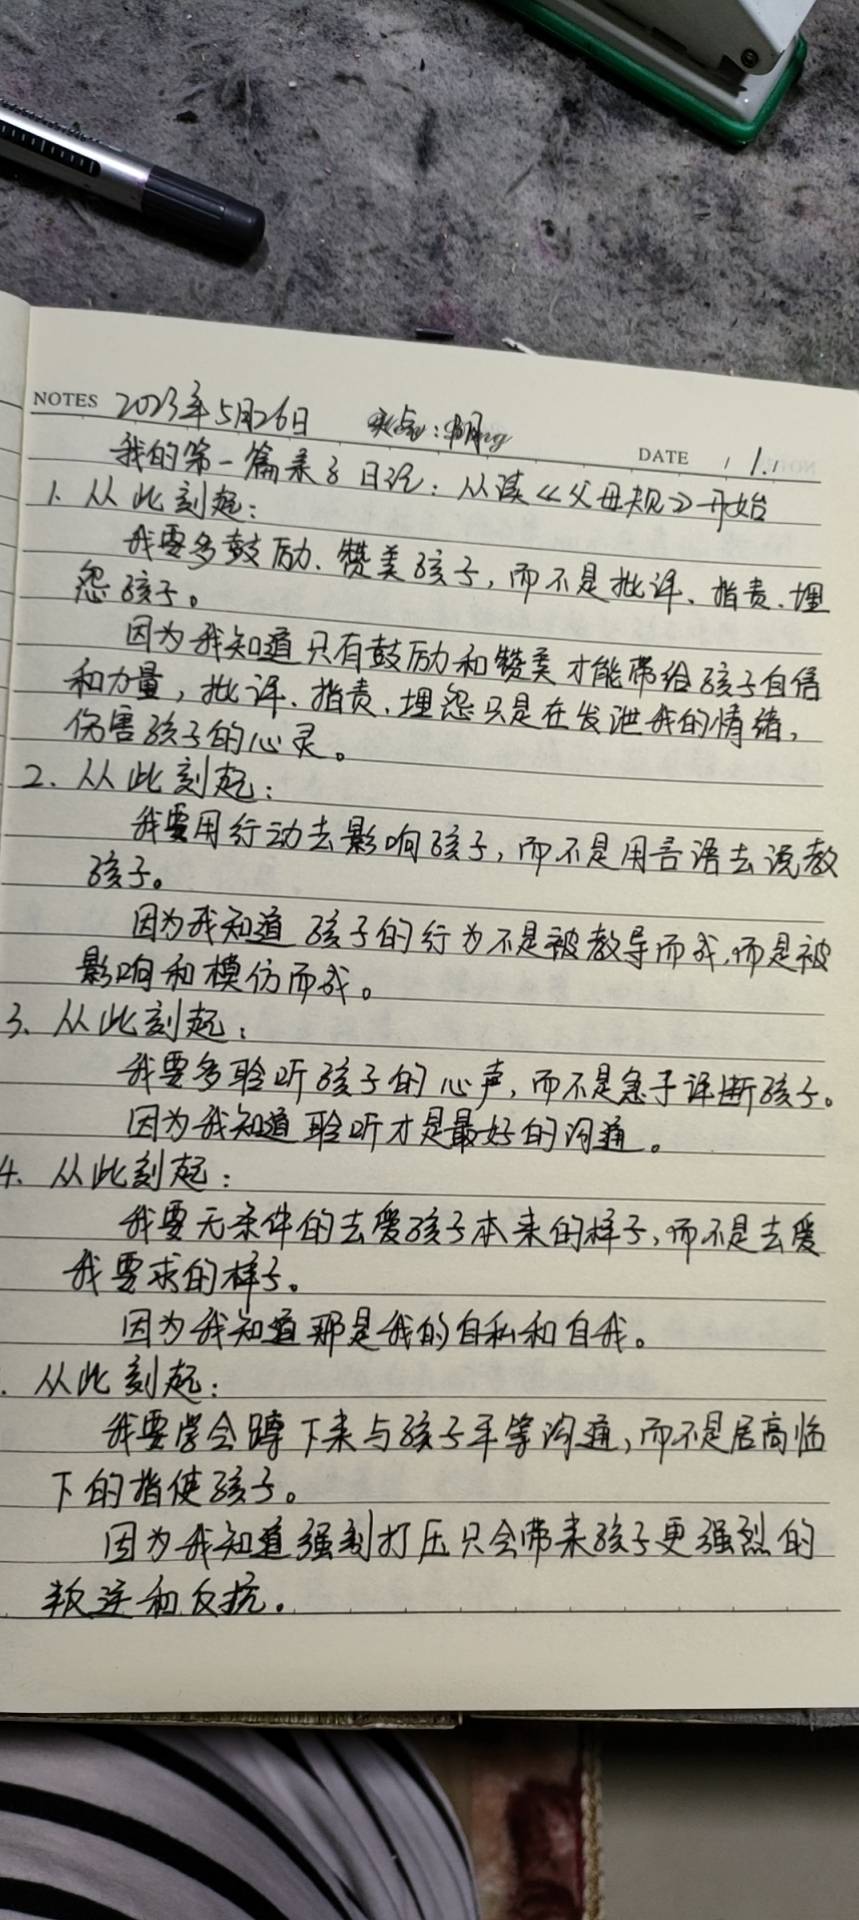 NOTES 2023年5月26日
DATE 1.
我的第一篇亲子日记：从读《父母规》开始
1、从此刻起：
我要多鼓励、赞美孩子，而不是批评、指责、埋
怨孩子。
因为我知道只有鼓励和赞美才能带给孩子自信
和力量，批评、指责、埋怨只是在发泄我的情绪，
伤害孩子的心灵。
2、从此刻起：
我要用行动去影响孩子，而不是用言语去说教
孩子。
因为我知道孩子的行为不是被教导而成，而是被
影响和模仿而成。
3、从此刻起：
我要多聆听孩子的心声，而不是急于评断孩子。
因为我知道聆听才是最好的沟通。
4、从此刻起：
我要无条件的去爱孩子本来的样子，而不是去爱
我要求的样子。
因为我知道那是我的自私和自我。
从此刻起：
我要学会蹲下来与孩子平等沟通，而不是居高临
下的指使孩子。
因为我知道强制打压只会带来孩子更强烈的
叛逆和反抗。